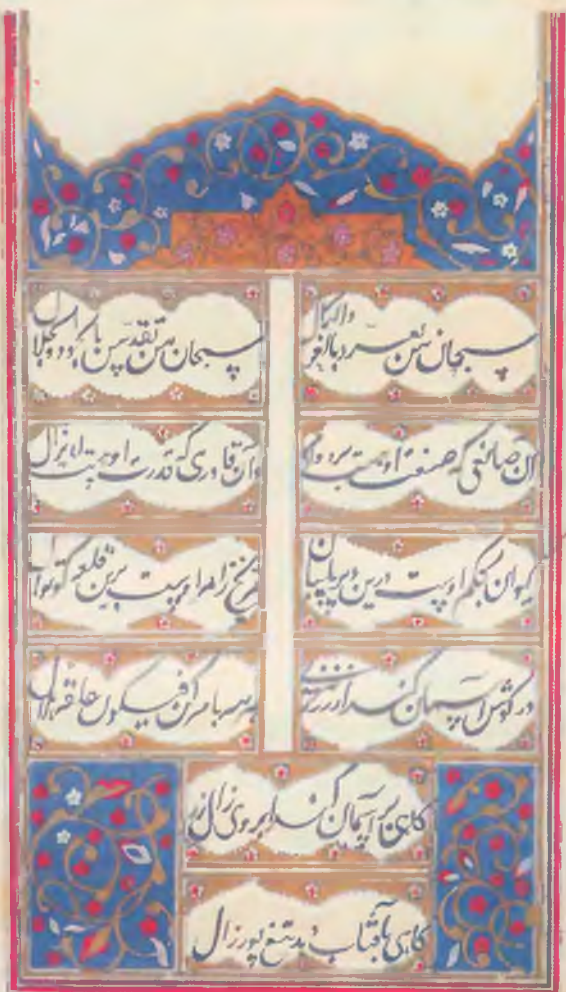 سبحان من تفرد بالعز والکمال
سبحان من تقدس بالجود والجلال
آن صانعی که صنعت او هست بر دوام
وآن قادری که قدرت او هست لایزال
کیوان بحکم اوست درین دیر پاسبان
مریخ زامر اوست برین قلعه کوتوال
در گوش آسمان کند از زر
بامر کن فیکون حلقه هلال
گاهی بر آسمان کند ابروی زال زر
گاهی بآفتاب دهد تیغ پور زال